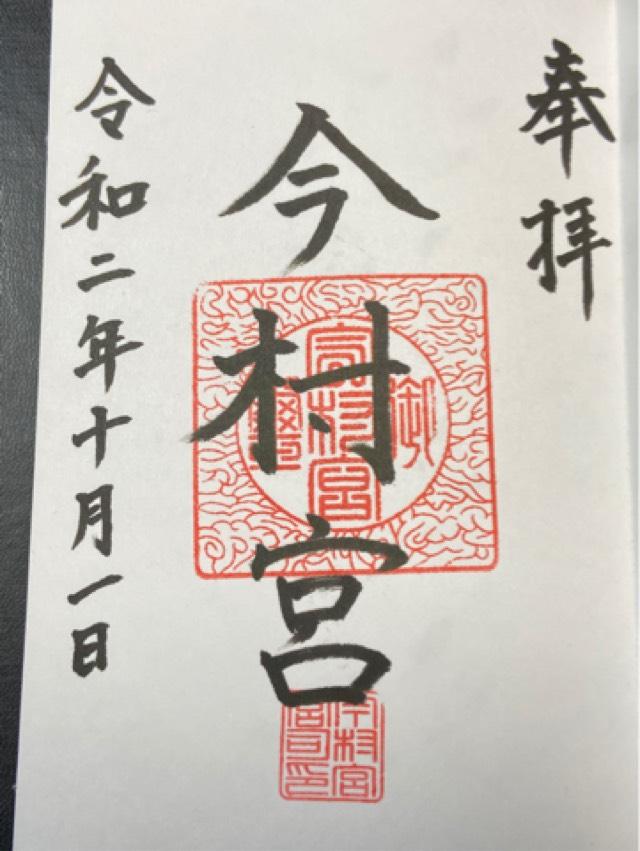 奉拝
今村宮
令和二年十月一日
今村宮